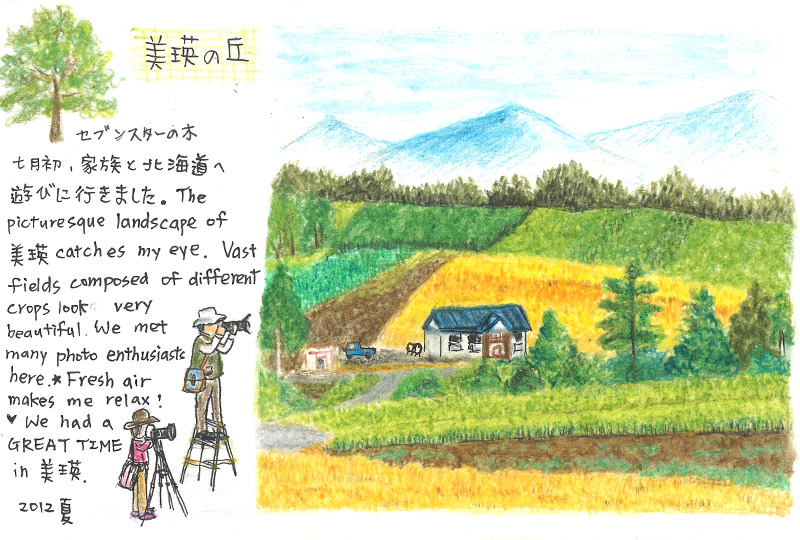 美瑛の丘
セブンスターの木
七月初、家族と北海道へ
遊びに行きました。The
picturesque landscape of
美瑛 catches my eye. Vast
fields composed of different
crops look very
beautiful. We met
many photo enthusiasts
here.* Fresh air
makes me relax!
♥ We had a
GREAT TIME
in 美瑛.
2012 夏